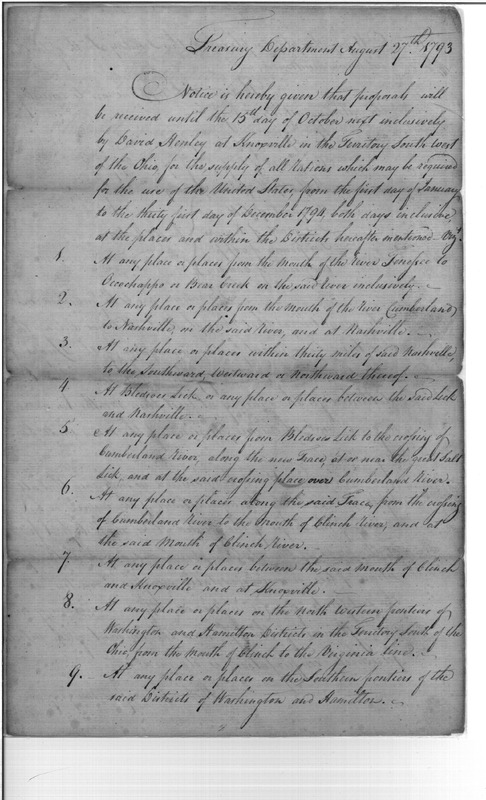 Treasury Department August 27th 1793
Notice is hereby given that proposals will
be received until the 15th day of October next inclusively
by David Henley at Knoxville in the Territory South West
of the Ohio, for the supply of all Rations which may be required
for the use of the United States from the first day of January
to the thirty first day of December 1794, both days inclusive,
at the places and within the Districts hereafter mentioned Viz
1. At any place or places from the Mouth of the River Tenessee to
Ocochappo or Bear Creek on the said River inclusively.
2. At any place or places from the Mouth of the River Cumberland
to Nashville, on the said River, and at Nashville.
3. At any place or places within thirty miles of said Nashville
to the Southward, Westward or Northward thereof.
4 At Bledsoes Lick, or any place or places between the said Lick
and Nashville.
5 At any place or places from Bledsoes Lick to the crossing of
Cumberland River, along the new Trace, at or near the great Salt
Lick, and at the said crossing place over Cumberland River.
6. At any place or places along the said Trace, from the crossing
of Cumberland River to the Mouth of Clinch River, and at
the said Mouth of Clinch River.
7. At any place or places between the said Mouth of Clinch
and Knoxville and at Knoxville.
8. At any place or places on the North Western frontiers of
Washington and Hamilton Districts in the Territory South of the
Ohio, from the Mouth of Clinch to the Virginia line.
9. At any place or places on the Southern frontiers of the
said Districts of Washington and Hamilton.